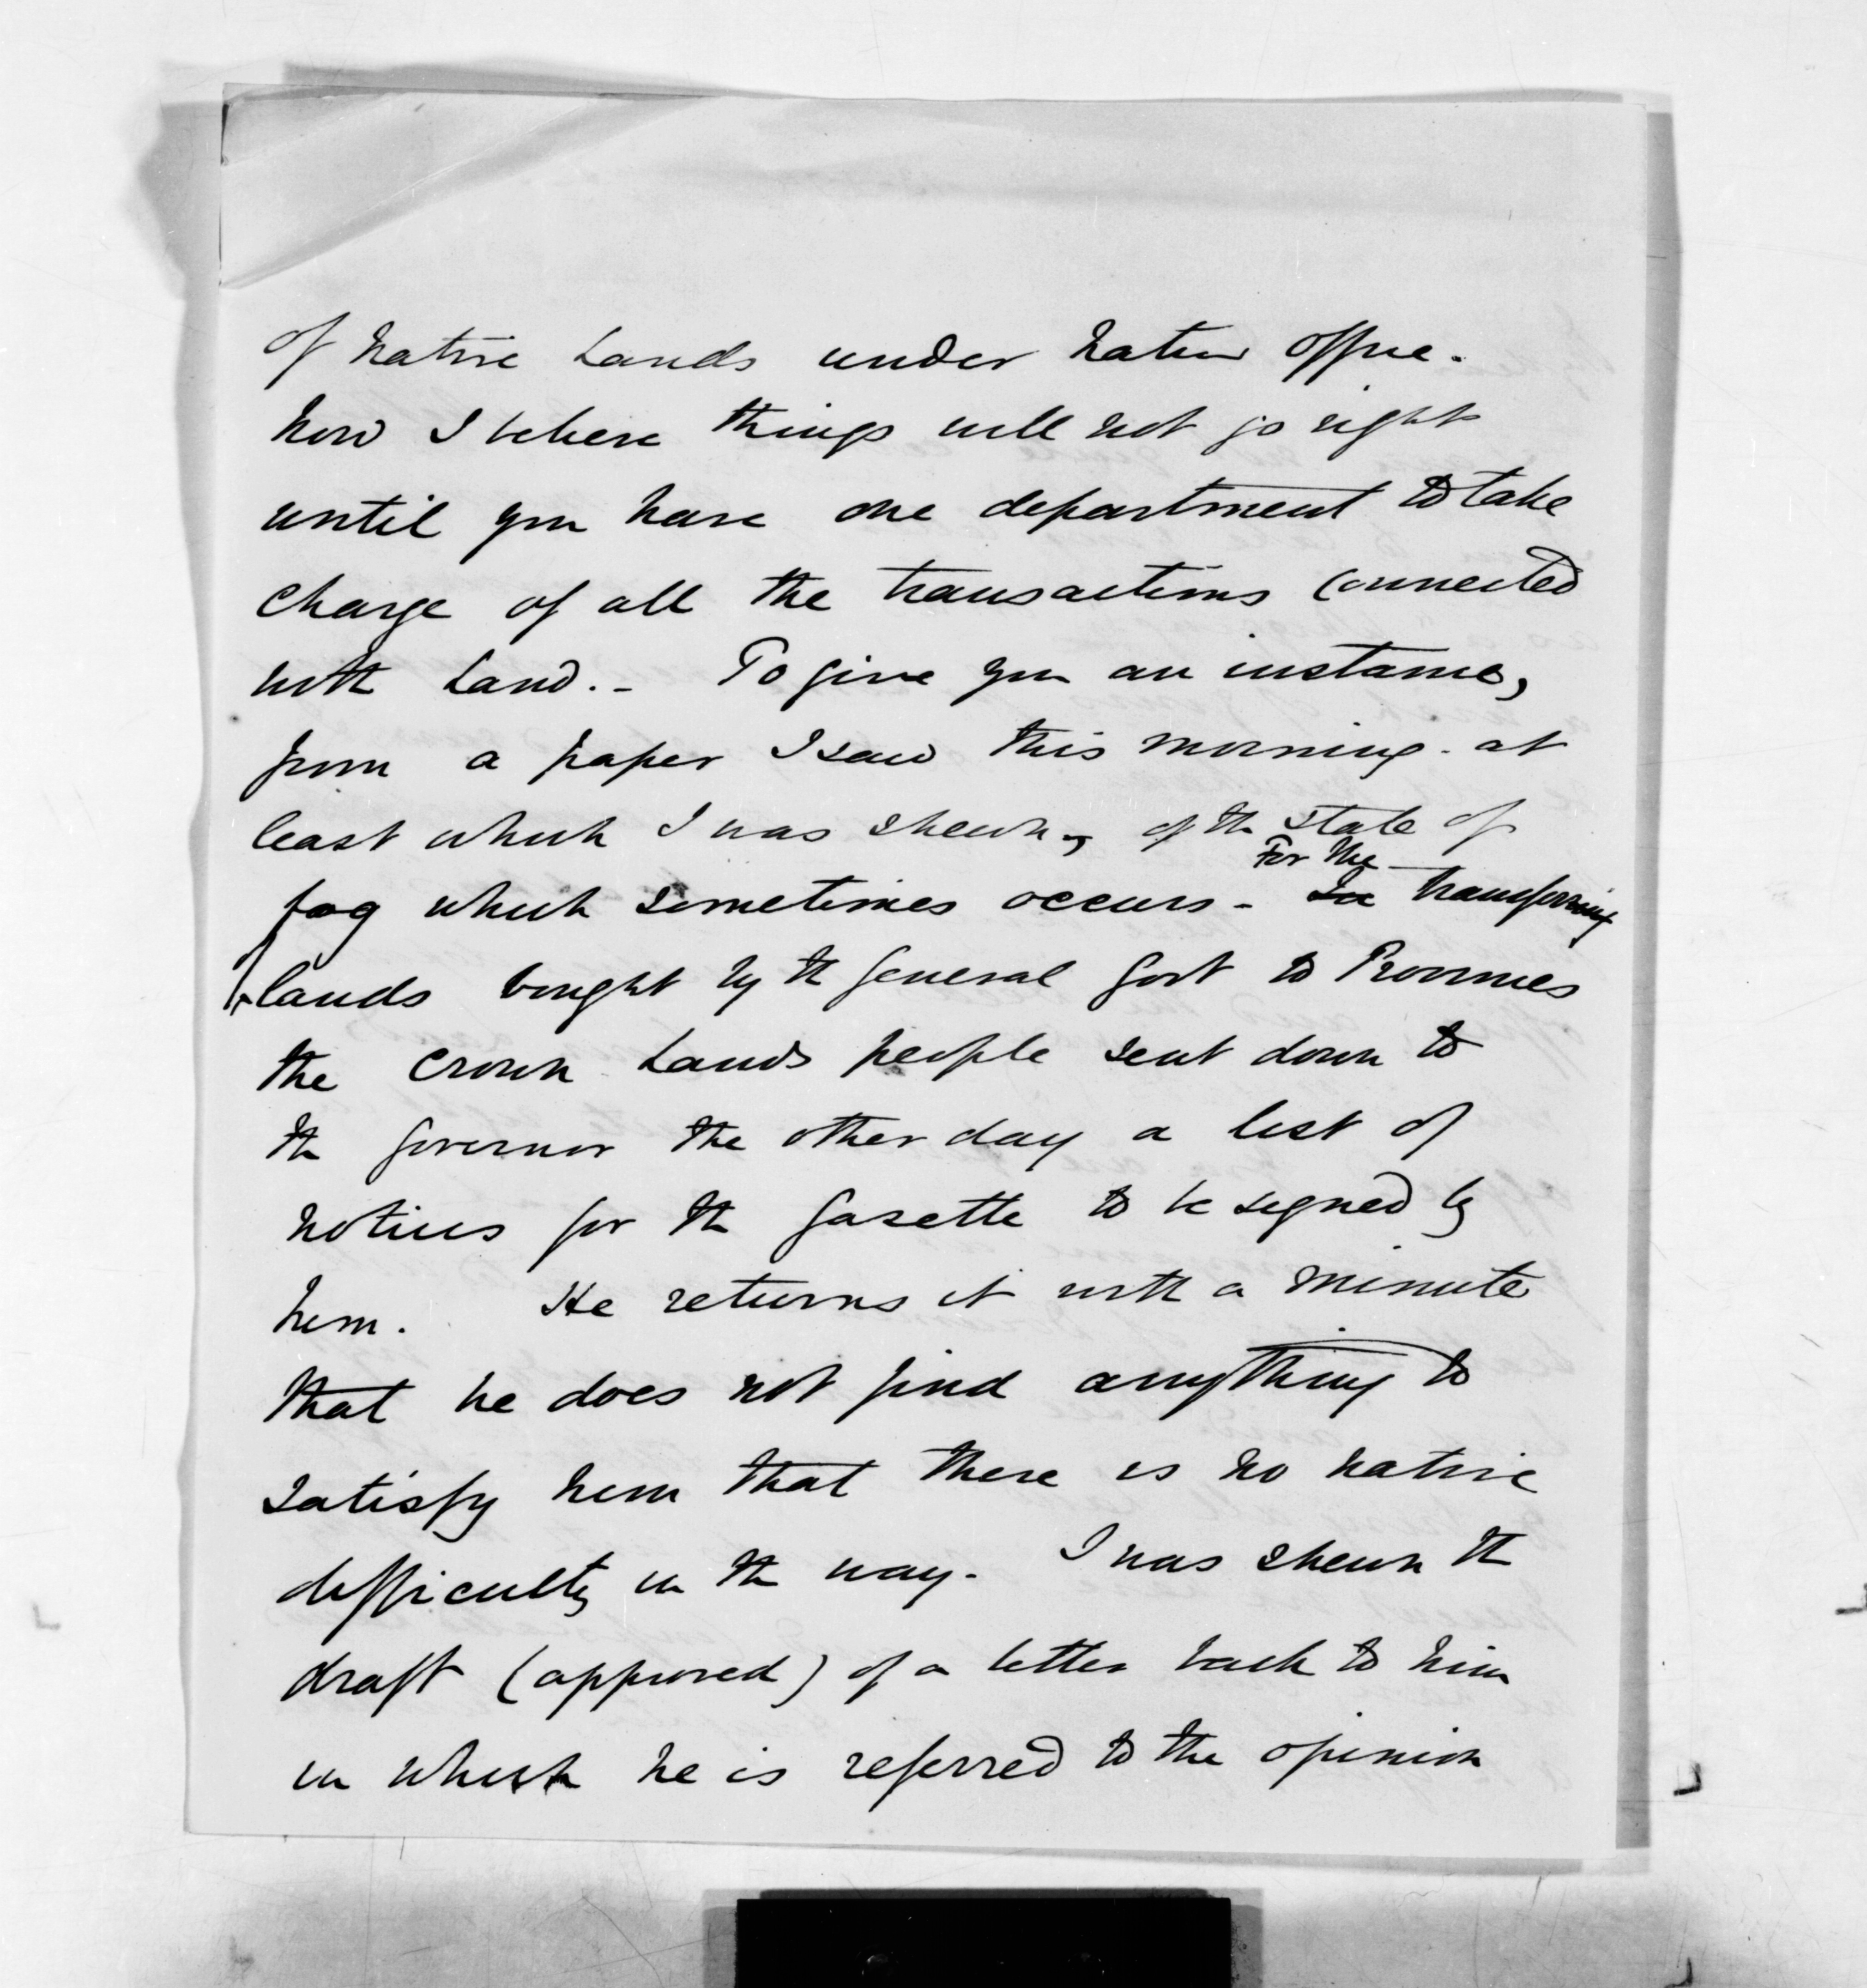 of Native Lands under Native Office.
Now I believe things will not go right
until you have one department to take
charge of all the transactions connected
with Land. - To give you an instance,
from a paper I saw this morning - at
least which I was shewn, of the state of
fog which sometimes occurs - In For the transferring
lands bought by the General Govt to Provinces
the Crown Lands people sent down to
the Governor the other day a list of
notices for the Gazette to be signed by
him. He returns it with a minute
that he does not find anything to
satisfy him that there is no native
difficulty in the way. I was shewn the
draft (approved) of a letter back to him
in which he is referred to the opinion